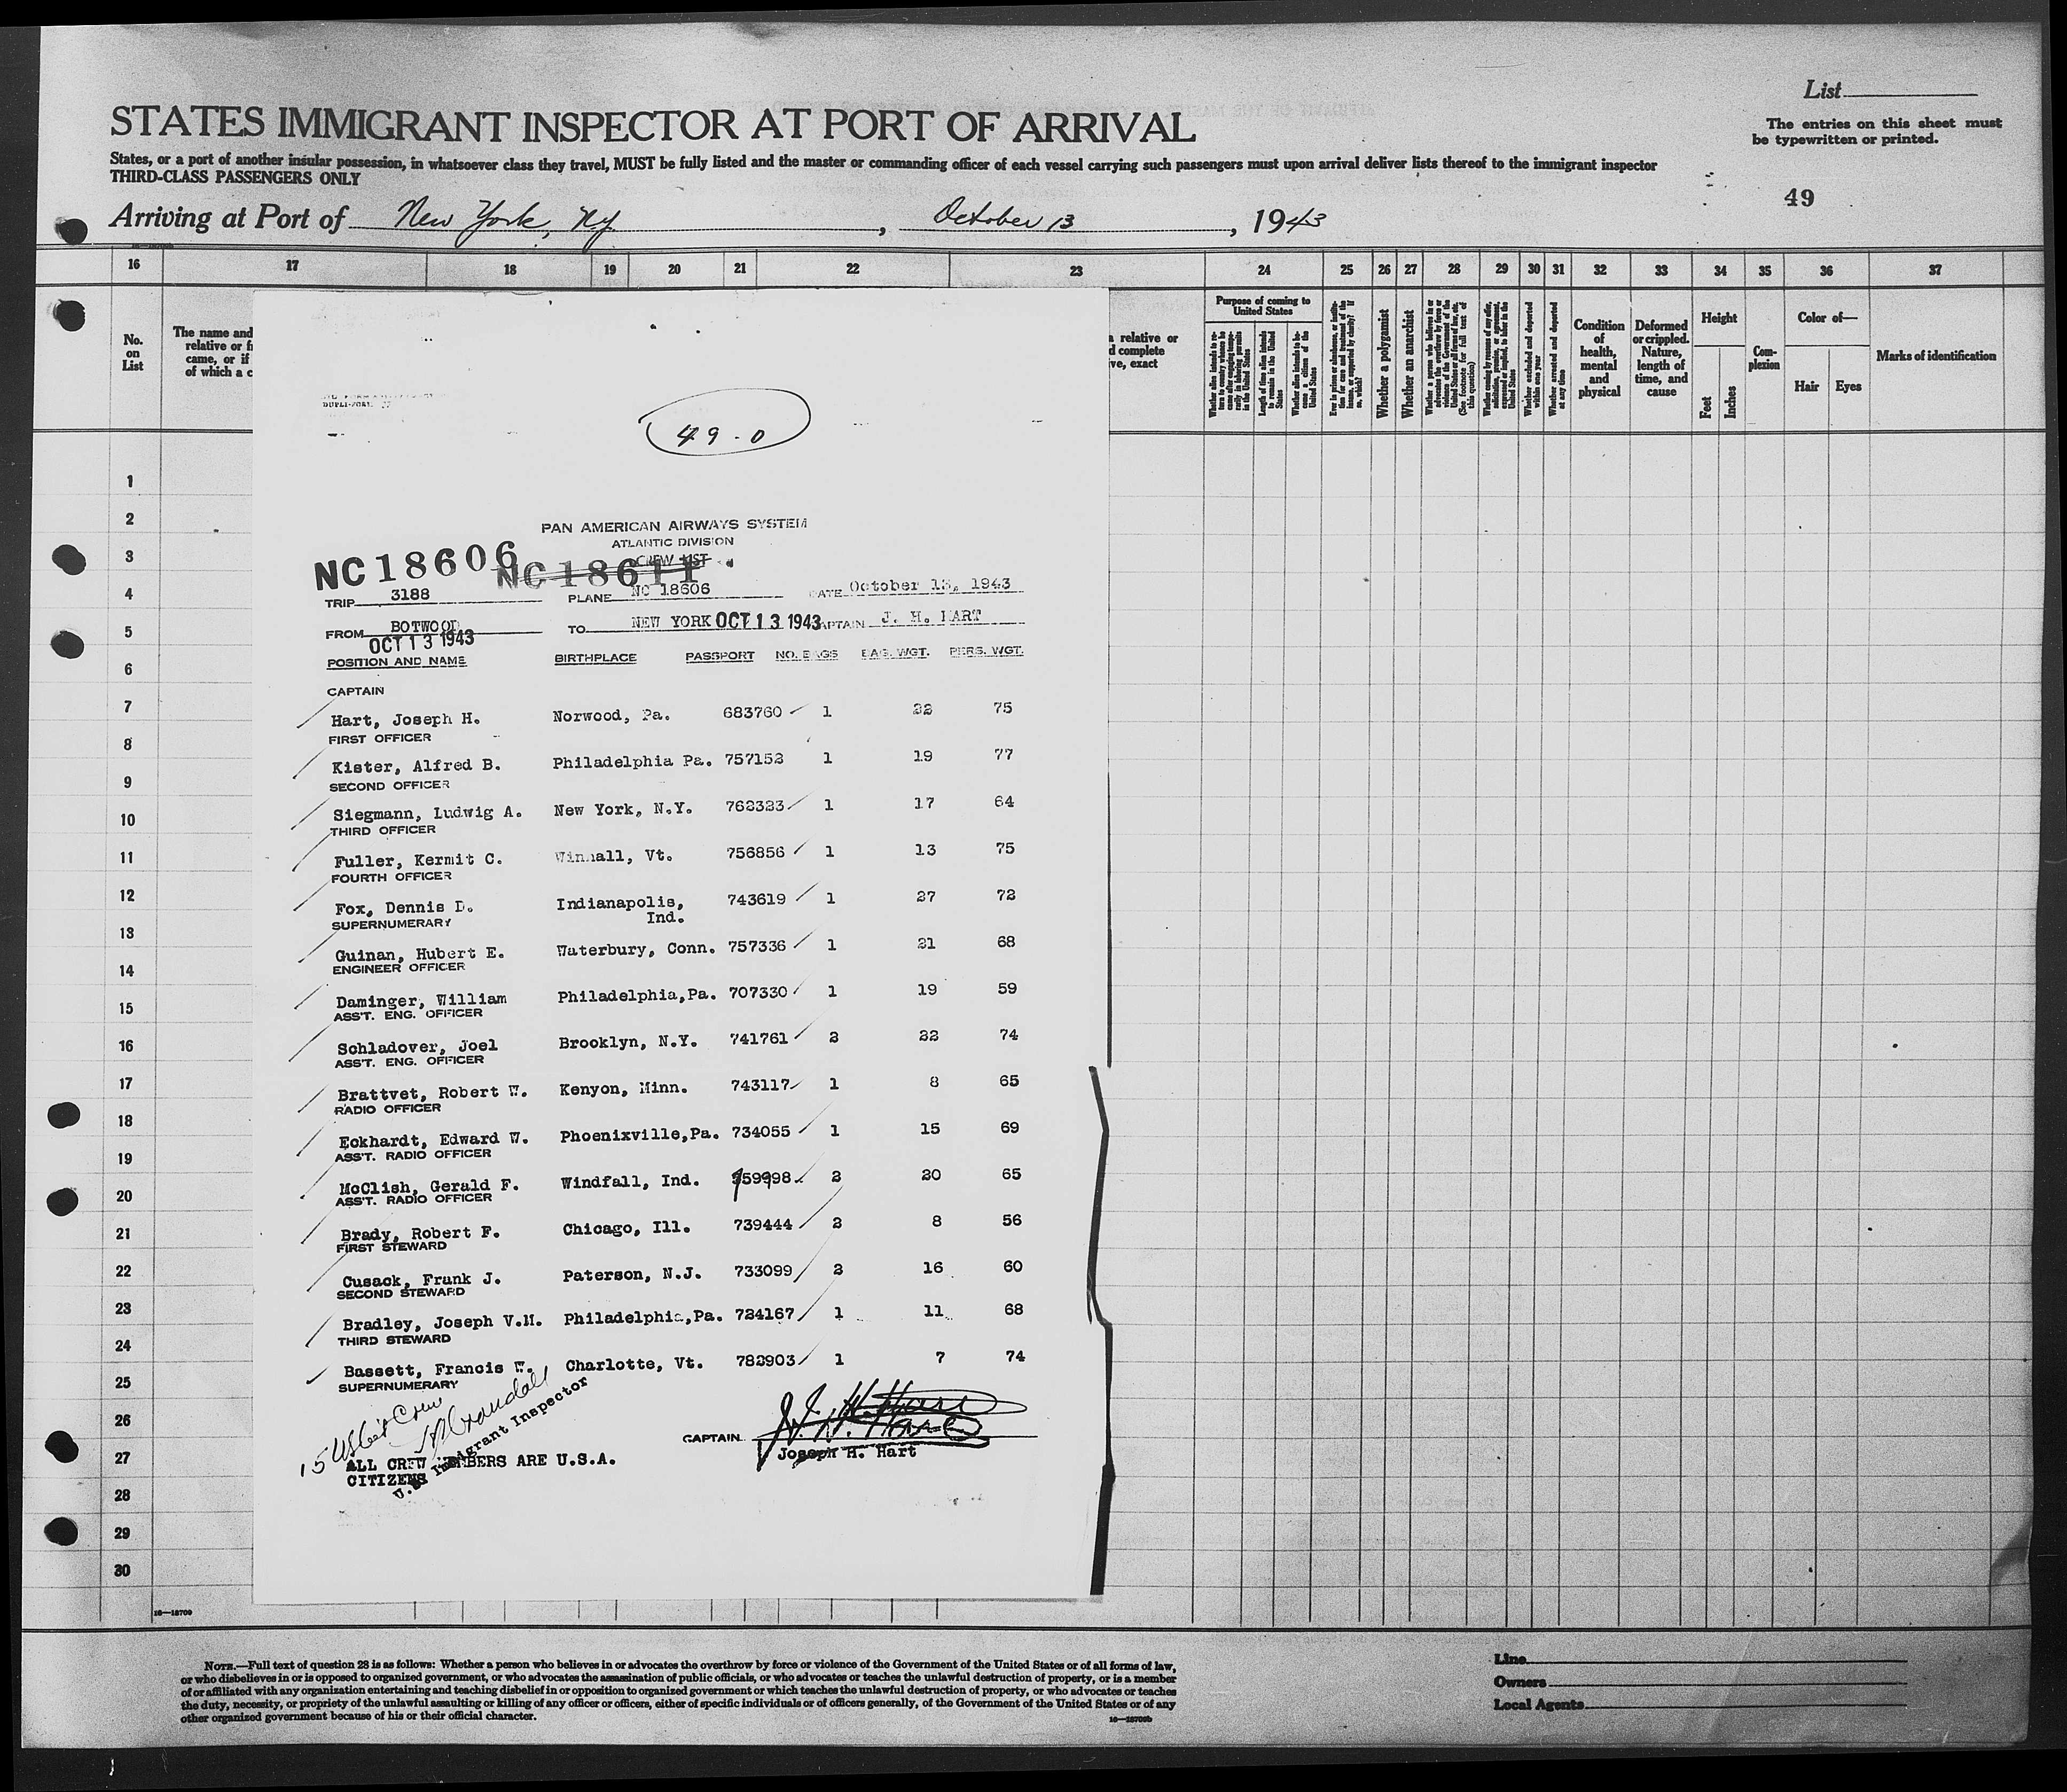 List
The entries on this sheet must
be typewritten or printed.
STATES IMMIGRANT INSPECTOR AT PORT OF ARRIVAL
States, or a port of another insular possession, in whatsoever class they travel, MUST be fully listed and the master or commanding officer of each vessel carrying such passengers must upon arrival deliver lists thereof to the immigrant inspector
THIRD-CLASS PASSENGERS ONLY
49
Arriving at Port of New York, N.Y. , October 13 , 1943
16 17 18 19 20 21 22 23 24 25 26 27 28 29 30 31 32 33 34 35 36 37
No.
on
List
The name and
relative or f
came, or if
of which a c
a relative or
d complete
ve, exact
Purpose of coming to
United States
Whether a polygamist
Whether an anarchist
Whether excluded and deported
within one year
Whether arrested and deported
at any time
Condition
of
health,
mental
and
physical
Deformed
or crippled.
Nature,
length of
time, and
cause
Height
Feet
Inches
Com-
plexion
Color of—
Hair Eyes
Marks of identification
1
2
3
4
5
6
7
8
9
10
11
12
13
14
15
16
17
18
19
20
21
22
23
24
25
26
27
28
29
30
49-0
PAN AMERICAN AIRWAYS SYSTEM
ATLANTIC DIVISION
CREW LIST
NC18606 NC18611
TRIP 3188 PLANE NC 18606 DATE October 13, 1943
FROM BOTWOOD TO NEW YORK OCT 13 1943 CAPTAIN J. H. HART
OCT 13 1943
POSITION AND NAME BIRTHPLACE PASSPORT NO. BAGS BAG. WGT. PERS. WGT.
CAPTAIN
Hart, Joseph H. Norwood, Pa. 683760 1 22 75
FIRST OFFICER
Kister, Alfred B. Philadelphia Pa. 757152 1 19 77
SECOND OFFICER
Siegmann, Ludwig A. New York, N.Y. 762323 1 17 64
THIRD OFFICER
Fuller, Kermit C. Winhall, Vt. 756856 1 13 75
FOURTH OFFICER
Fox, Dennis D. Indianapolis, 743619 1 27 72
Ind.
SUPERNUMERARY
Guinan, Hubert E. Waterbury, Conn. 757336 1 21 68
ENGINEER OFFICER
Daminger, William Philadelphia,Pa. 707330 1 19 59
ASS'T. ENG. OFFICER
Schladover, Joel Brooklyn, N.Y. 741761 2 22 74
ASS'T. ENG. OFFICER
Brattvet, Robert W. Kenyon, Minn. 743117 1 8 65
RADIO OFFICER
Eckhardt, Edward W. Phoenixville,Pa. 734055 1 15 69
ASS'T. RADIO OFFICER
McClish, Gerald F. Windfall, Ind. 2 20 65
ASS'T. RADIO OFFICER
Brady, Robert F. Chicago, Ill. 739444 2 8 56
FIRST STEWARD
Cusack, Frank J. Paterson, N.J. 733099 2 16 60
SECOND STEWARD
Bradley, Joseph V.M. Philadelphia,Pa. 724167 1 11 68
THIRD STEWARD
Bassett, Francis W. Charlotte, Vt. 782903 1 7 74
SUPERNUMERARY
15 Crew
U.S. Immigrant Inspector
ALL CREW MEMBERS ARE U.S.A.
CITIZENS
CAPTAIN J. H. Hart
Joseph H. Hart
16—18709
NOTE.—Full text of question 28 is as follows: Whether a person who believes in or advocates the overthrow by force or violence of the Government of the United States or of all forms of law,
or who disbelieves in or is opposed to organized government, or who advocates the assassination of public officials, or who advocates or teaches the unlawful destruction of property, or is a member
of or affiliated with any organization entertaining and teaching disbelief in or opposition to organized government or which teaches the unlawful destruction of property, or who advocates or teaches
the duty, necessity, or propriety of the unlawful assaulting or killing of any officer or officers, either of specific individuals or of officers generally, of the Government of the United States or of any
other organized government because of his or their official character.
16—18709b
Line
Owners
Local Agents